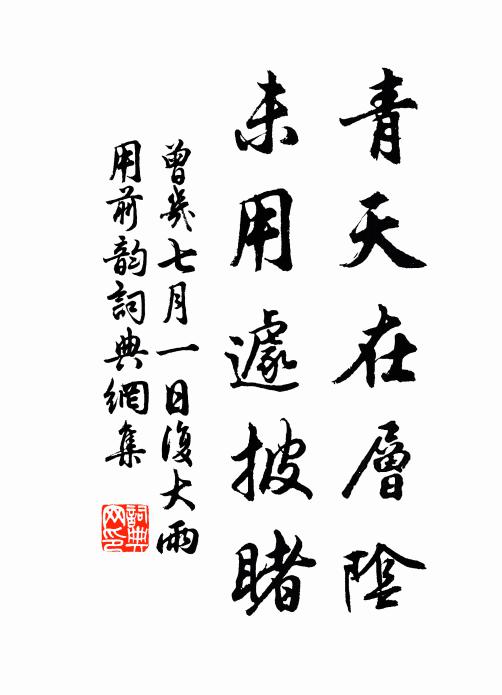 青天在層陰
未用遽披睹
曾幾七月一日復大雨
用前韵詞典網集
詞典網印